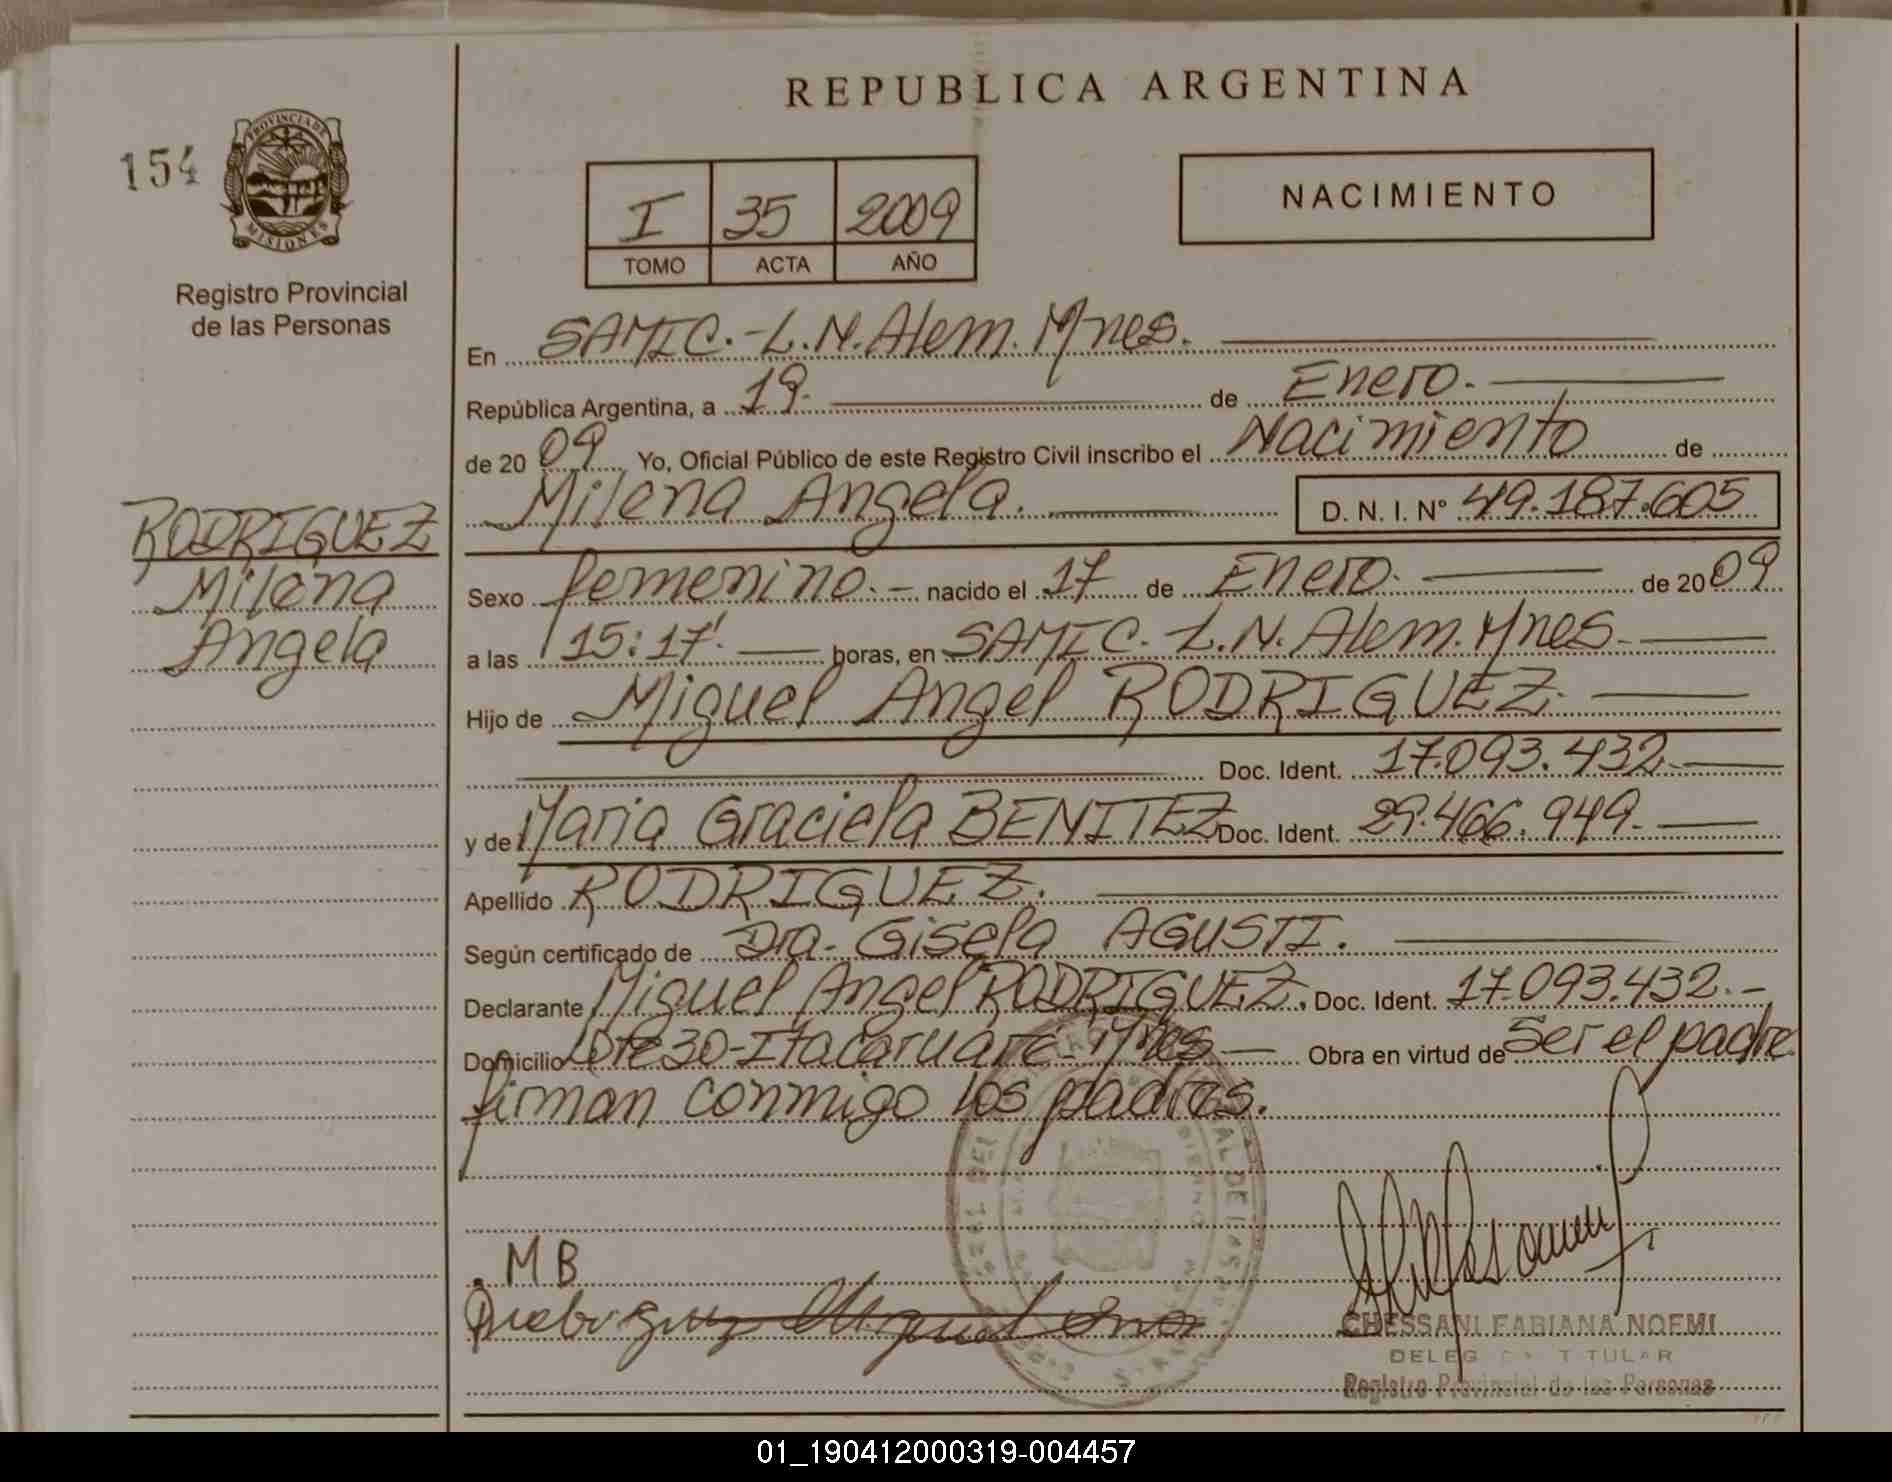 REPUBLICA ARGENTINA
154
PROVINCIA DE
MISIONES
Registro Provincial
de las Personas
I 35 2009
TOMO ACTA AÑO
NACIMIENTO
En SAMIC.-L.N.Alem. Mnes.
República Argentina, a 19. de Enero.
de 2009 Yo, Oficial Público de este Registro Civil inscribo el Nacimiento de
Milena Angela. D. N. I. N° 49.187.605
RODRIGUEZ
Milena
Angela
Sexo femenino.- nacido el 17 de Enero. de 2009
a las 15:17'. horas, en SAMIC. L.N. Alem. Mnes.
Hijo de Miguel Angel RODRIGUEZ.
Doc. Ident. 17.093.432.
y de Maria Graciela BENITEZ Doc. Ident. 29.466.949.
Apellido RODRIGUEZ.
Según certificado de Dra. Gisela AGUSTI.
Declarante Miguel Angel RODRIGUEZ. Doc. Ident. 17.093.432.-
Domicilio Lote 30-Itacaruaré-Mnes Obra en virtud de Ser el padre
firman conmigo los padres.
MB
CHESSANI FABIANA NOEMI
DELEGADA TITULAR
Registro Provincial de las Personas
01_190412000319-004457